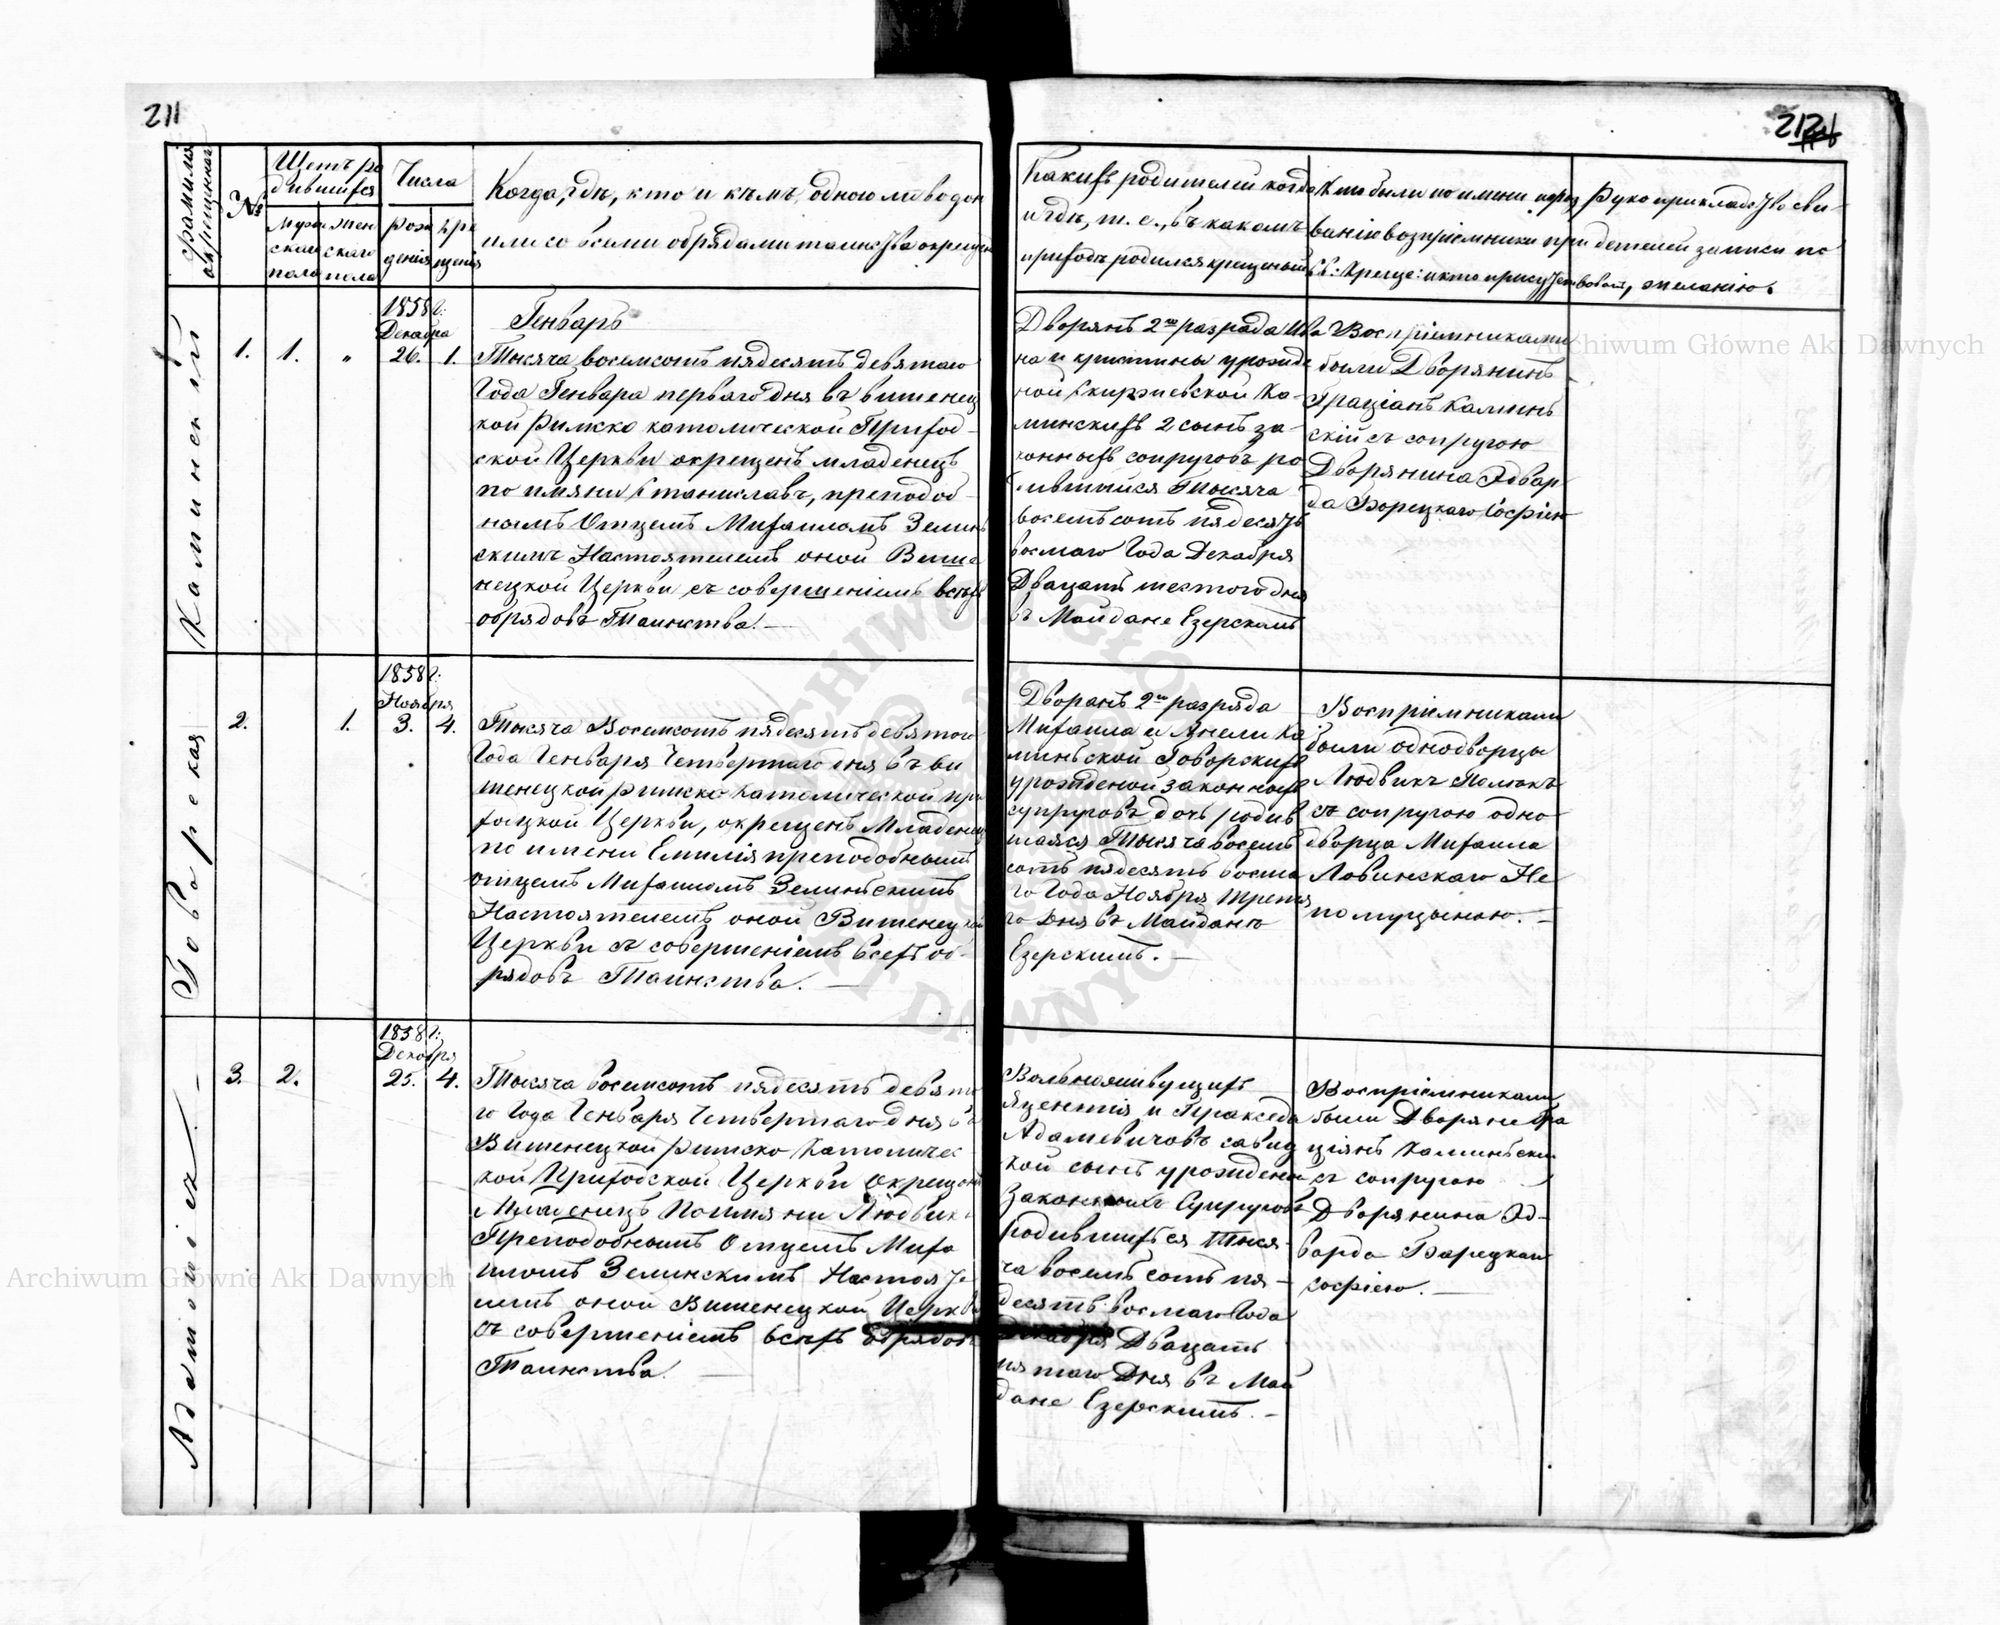 211
212
Фамилія
окрещеннаго
№
Щетъ ро
дившихся
Числа
мужескаго
пола
женскаго
пола
рож
денія
кре
щенія
Когда, гдѣ, кто и кѣмъ, одною ли водою
или со всеми обрядами таинства окрещенъ
Какихъ родителей когда
и гдѣ, т. е., въ какомъ
приходѣ родился крещеный
Кто были по имени и проз
ванію воспріемники при
Св: Креще: и кто присутствовалъ,
Рукоприкладство сви-
детелей записи по
желанію
Каминскій
1.
1.
"
1858 г:
Декабря
26.
1.
Генварь
Тысяча восемсотъ пядесятъ девятаго
Года Генвара перваго дня въ Вишенец
кой Римско католической Приход-
ской Церкви окрещенъ младенецъ
по имяни Станиславъ, преподоб-
нымъ Отцемъ Михаиломъ Зелин
скимъ Настоятелемъ оной Више
нецкой Церкви съ совершеніемъ всѣхъ
обрядовъ Таинства. —
Дворянъ 2го разрада Ива
на и Кристины урожде
ной Скиржевской Ка-
минскихъ 2 сынъ за-
конныхъ супруговъ ро
дившійся Тысяча
восемъсотъ пядесятъ
восмаго Года Декабря
Двацатъ шестого дня
въ Майдане Езерскомъ
Воспріемниками
были Дворянинъ
Граціанъ Камин
скій съ супругою
Дворянина Эдвар
да Борецкаго Софіею
Говорская
2.
1.
1858 г:
Ноября
3.
4.
Тысяча Восемсотъ пядесятъ девятого
Года Генваря Четвертаго дня въ Ви
шенецкой римско католической при
хоцкой Церкви, окрещенъ Младенец
по имени Емилія преподобнымъ
отцемъ Михаиломъ Зелинскимъ
Настоятелемъ оной Вишенецкой
Церкви съ совершеніемъ всехъ об-
рядовъ Таинства. —
Дворанъ 2го разряда
Михаила и Анели Ка
минской Говорскихъ
урожденой законныхъ
супруговъ дочь родив
шаяся Тысяча восемъ
сотъ пядесятъ восма
го Года Ноября Третя
го Дня въ Майданѣ
Езерскимъ. —
Воспріемниками
были однодворцы
Людвикъ Полюкъ
съ супругою одно
дворца Михаила
Ловинскаго Не
помуценою. —
Адамовіеч —
3.
2.
1858 г:
Декабря
25.
4.
Тысяча восемсотъ пядесятъ девято
го Года Генваря Четвертаго дня въ
Вишенецкой римско католичес-
кой Приходской Церкви окрещенъ
Младенецъ По имяни Людвик
Преподобнымъ Отцемъ Миха
иломъ Зелинскимъ Настояте
лемъ оной Вишенецкой Церкви
съ совершеніемъ всѣхъ обрядовъ
Таинства. —
Вольноживущихъ
Яцентія и Праксѣда
Адамевичовъ Савиц
кой сынъ урожденой
Законныхъ Супруговъ
родившихся Тыся-
ча восемъ сотъ пя-
десятъ восмаго Года
Декабря Двацатъ
пятаго Дня въ Май
дане Езерскимъ. —
Воспріемниками
были Дворяне Гра
ціянъ Каминьски
съ супругою
Дворянина Эд-
варда Борецкаго
Софіею. —
Archiwum Główne Akt Dawnych
Archiwum Główne Akt Dawnych